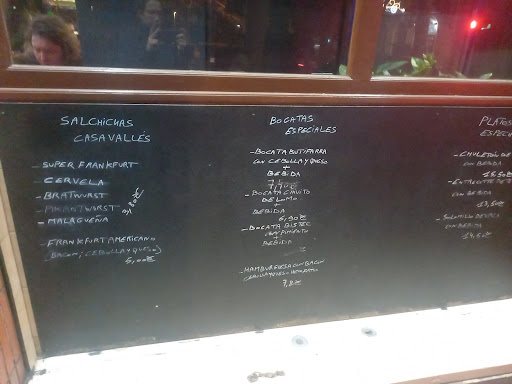 SALCHICHAS
CASAVALLÉS
- SUPER FRANKFURT
- CERVELA
- BRATWURST
- MALAGUEÑA
- FRANKFURT AMERICANO
(BACON, CEBOLLA Y QUESO)
5,00€
BOCATAS
ESPECIALES
- BOCATA BUTIFARRA
CON CEBOLLA Y QUESO
+
BEBIDA
- BOCATA CHIVITO
DE LOMO
+
BEBIDA
6,90€
- BOCATA BISTEC
CON PIMIENTO
+
BEBIDA
- HAMBURGUESA CON BACON
PLATOS
ESPECI
- CHULETÓN DE
CON BEBIDA
- ENTRECOTE DE
CON BEBIDA
- SOLOMILLO
CON BEBIDA